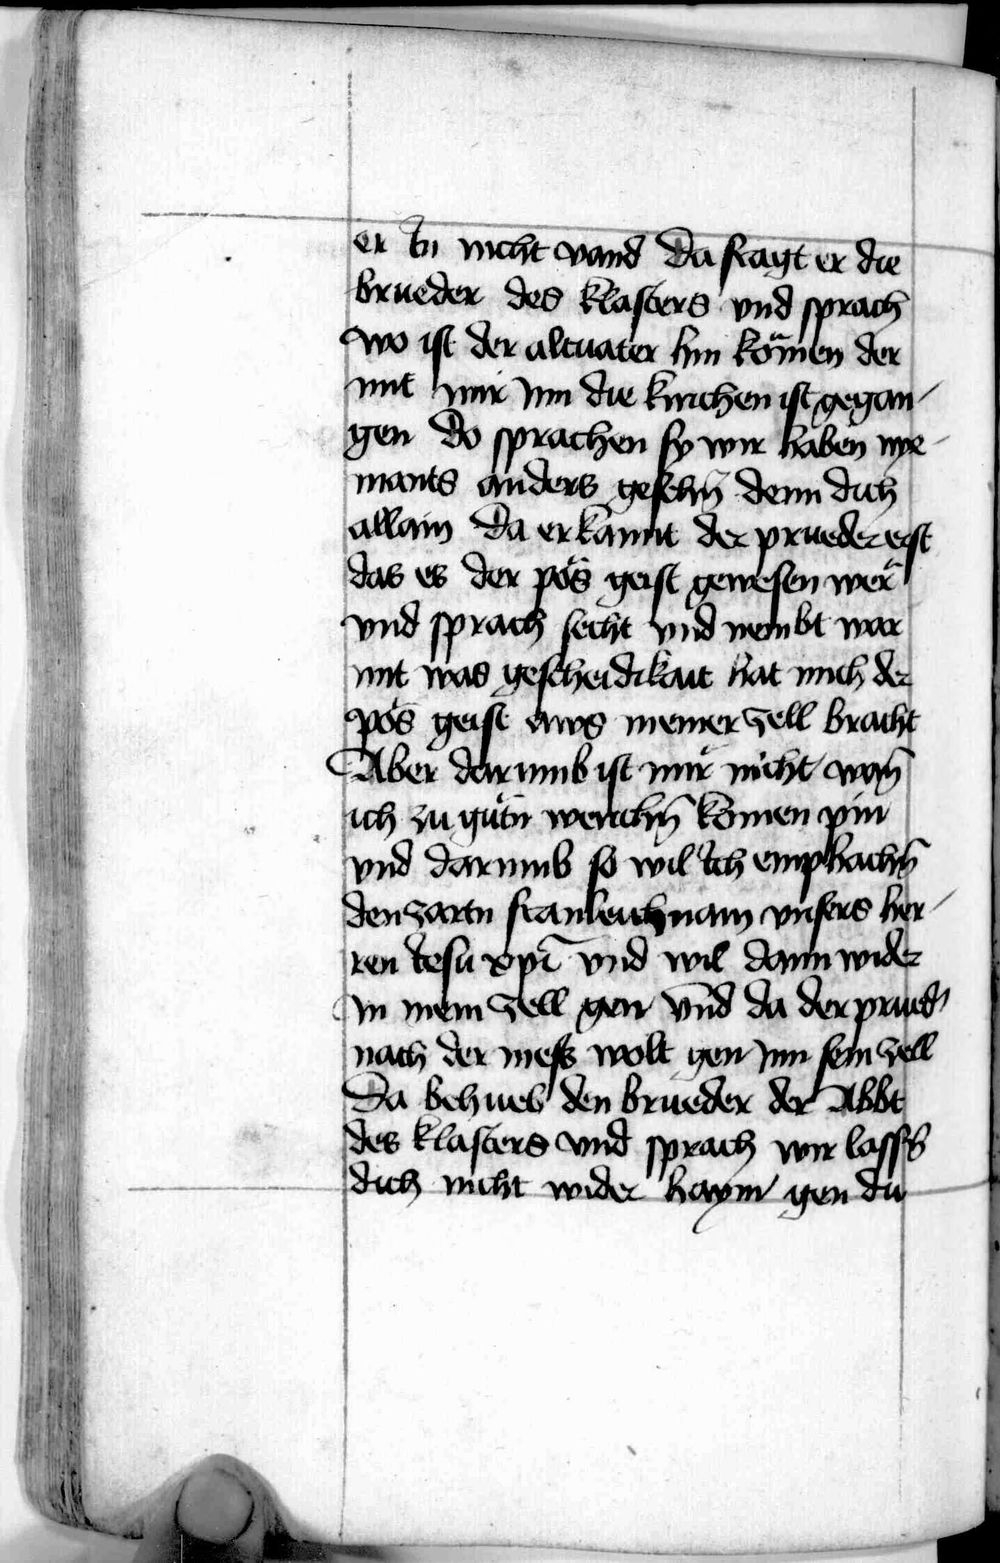 er In nicht vand Da fragt er die
brueder des klasters vnd sprach
wo ist der altuater hin kömen der
mit mir Inn die kirchen ist gegan-
gen Do sprachen sy wir haben nye-
mants anders gesehn̄ denn dich
allain Da erkannt der prueder erst
das es der pös geist gewesen wer
vnd sprach secht vnd nembt war
mit was gescheidikait hat mich der
pös geist aws meiner zell bracht
Aber darumb ist mir nicht wan̄
ich zu gütn werichn̄ komen pin
vnd darumb so wil Ich emphachn̄
den zartn franleichnam vnsers her-
ren Iesu xpī vnd wil dann wider
In mein zell gen Vnd da der prued'
nach der mess wolt gen Inn sein zell
Da behueb den brueder der Abbt
des klasters vnd sprach wir lassn̄
dich nicht wider haym gen du